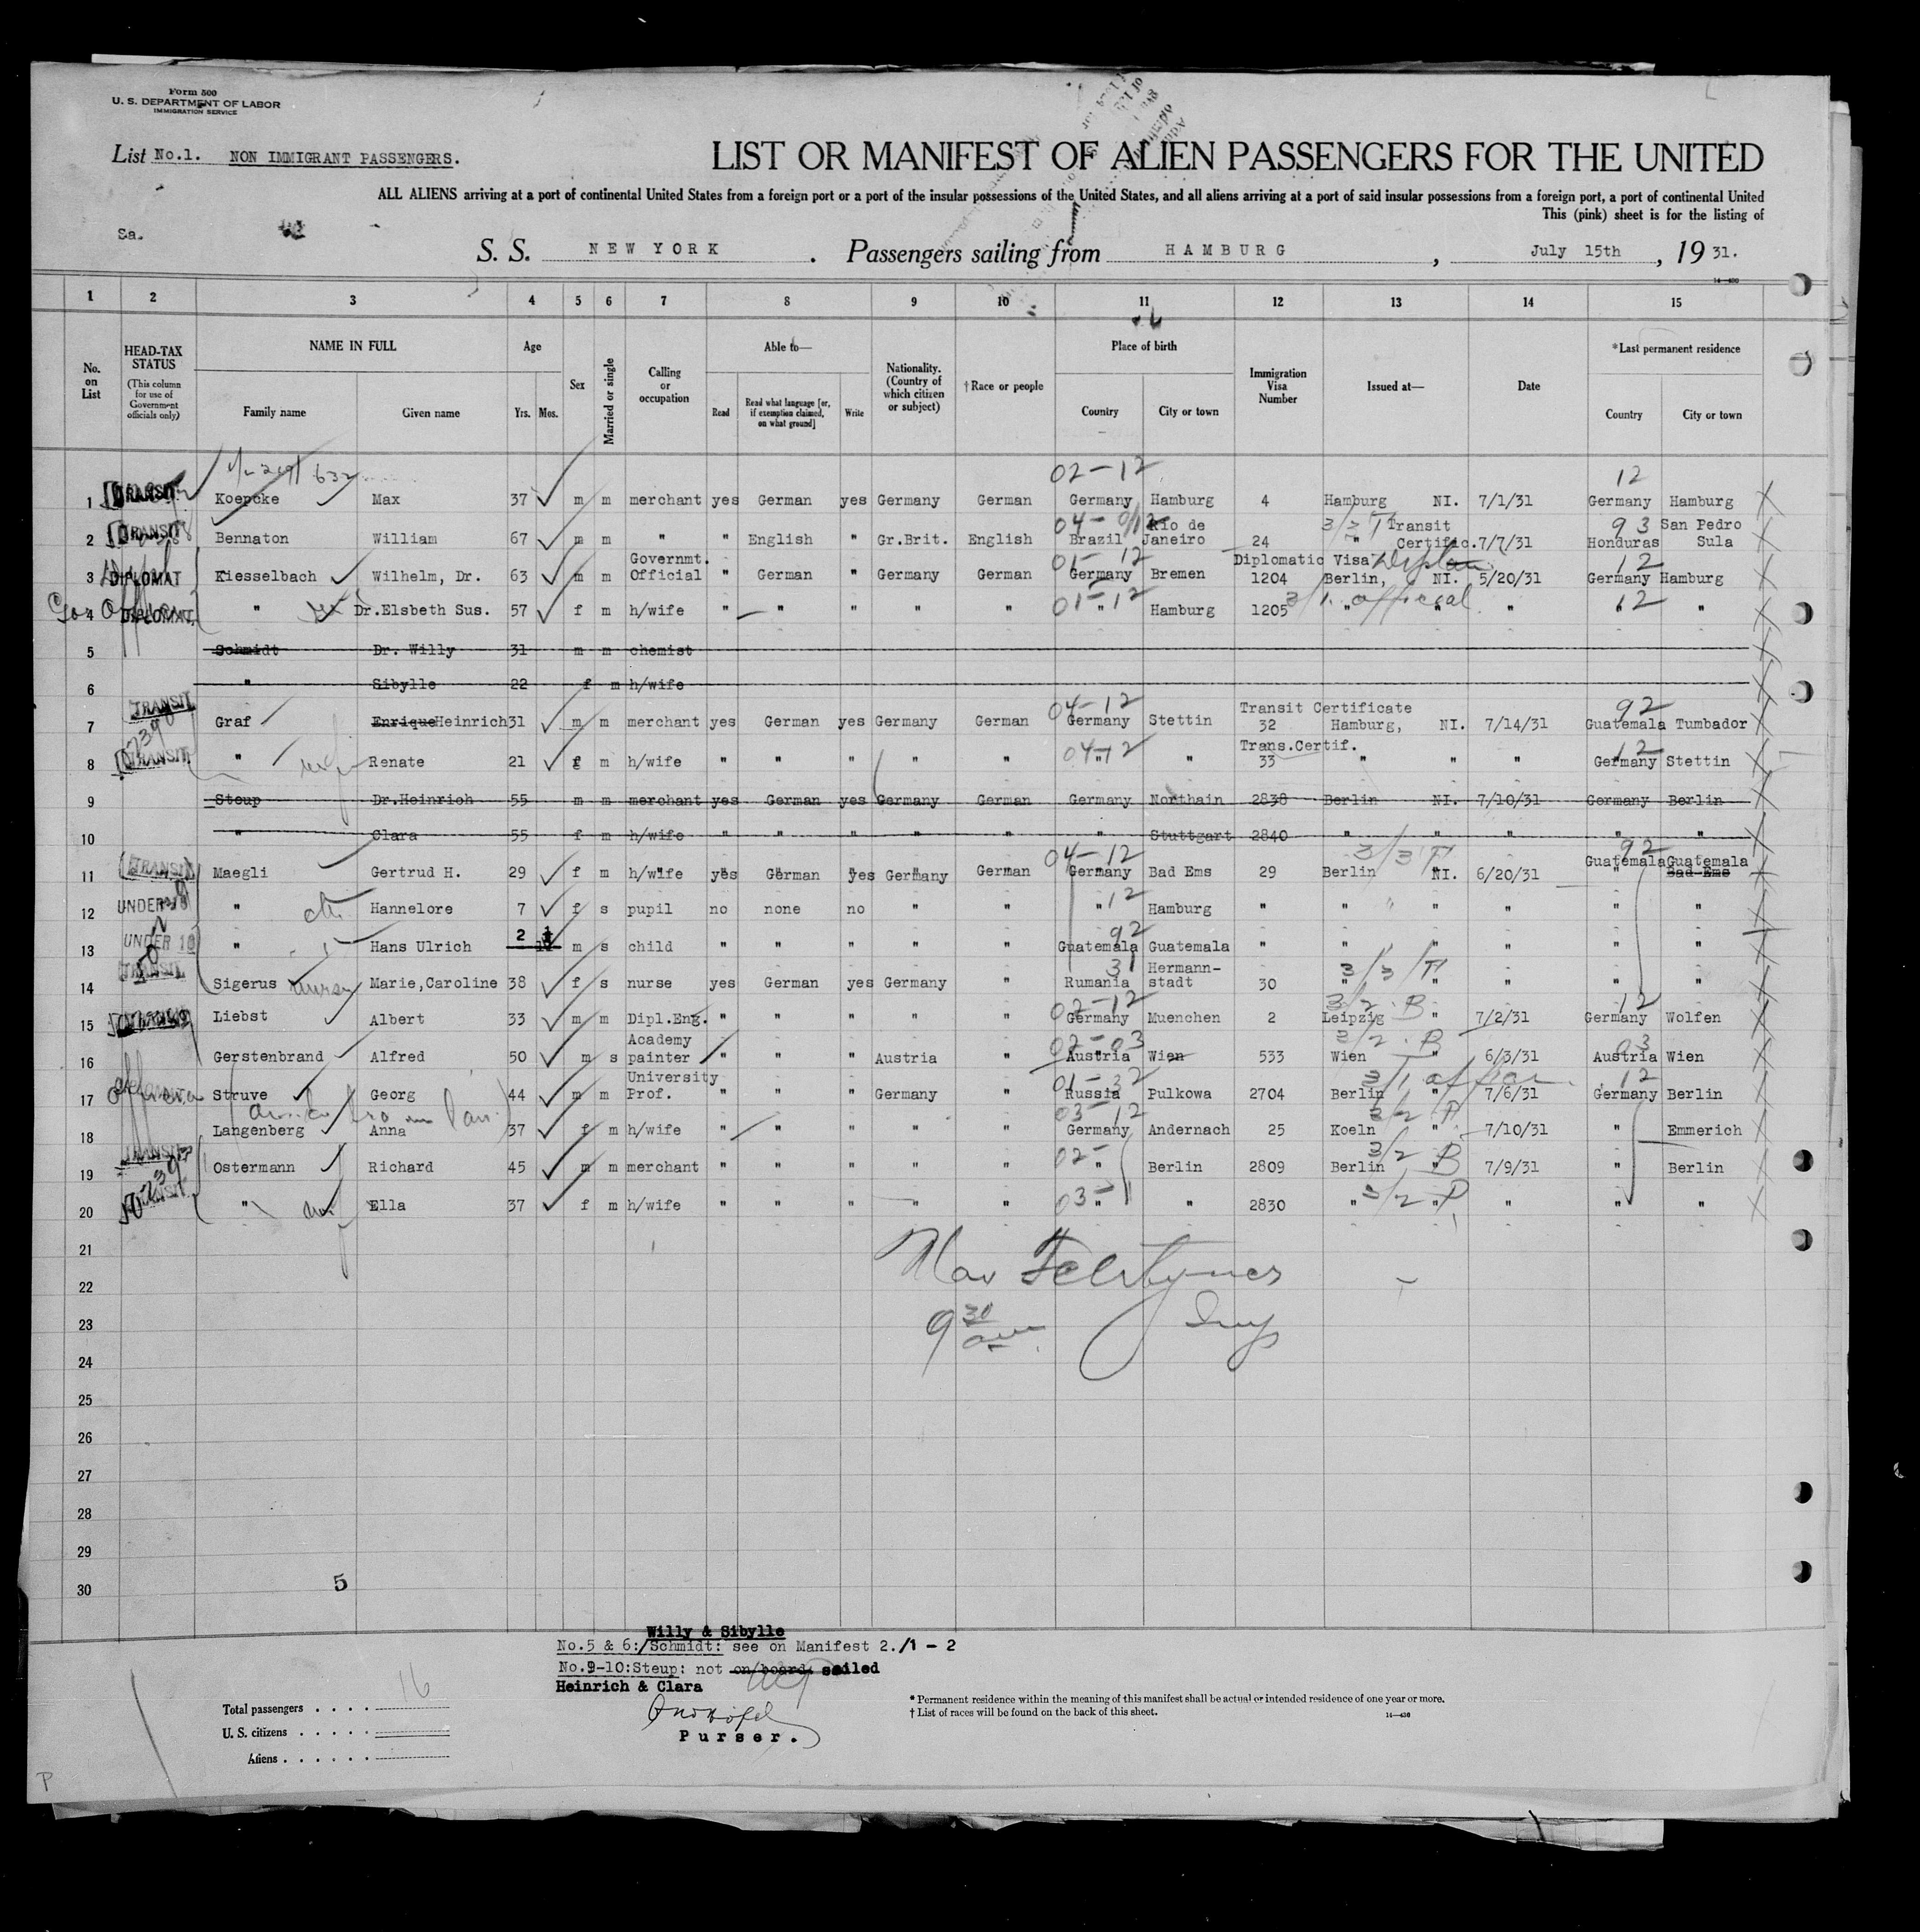 Form 500
U. S. DEPARTMENT OF LABOR
IMMIGRATION SERVICE
List No.1. NON IMMIGRANT PASSENGERS.
LIST OR MANIFEST OF ALIEN PASSENGERS FOR THE UNITED
ALL ALIENS arriving at a port of continental United States from a foreign port or a port of the insular possessions of the United States, and all aliens arriving at a port of said insular possessions from a foreign port, a port of continental United
This (pink) sheet is for the listing of
Sa.
S. S. NEW YORK . Passengers sailing from HAMBURG , July 15th , 19 31.
1 2 3 4 5 6 7 8 9 10 11 12 13 14 15
No. on List HEAD-TAX STATUS (This column for use of Government officials only) NAME IN FULL Family name Given name Age Yrs. Mos. Sex Married or single Calling or occupation Able to— Read Read what language [or, if exemption claimed, on what ground] Write Nationality. (Country of which citizen or subject) †Race or people Place of birth Country City or town Immigration Visa Number Issued at— Date *Last permanent residence Country City or town
02-12 12
1 TRANSIT Koepcke Max 37 m m merchant yes German yes Germany German Germany Hamburg 4 Hamburg NI. 7/1/31 Germany Hamburg
2 TRANSIT Bennaton William 67 m m " " English " Gr.Brit. English Brazil Rio de Janeiro 24 " Transit Certific. 7/7/31 93 Honduras San Pedro Sula
3 DIPLOMAT Kiesselbach Wilhelm, Dr. 63 m m Governmt. Official " German " Germany German 01-12 Germany Bremen Diplomatic Visa 1204 Berlin, NI. 5/20/31 12 Germany Hamburg
4 DIPLOMAT " Dr.Elsbeth Sus. 57 f m h/wife " " " " " 01-12 " Hamburg 1205 3/1 official " " " 12 " "
5 Schmidt Dr. Willy 31 m m chemist
6 " Sibylle 22 f m h/wife
7 TRANSIT Graf Enrique Heinrich 31 m m merchant yes German yes Germany German 04-12 Germany Stettin Transit Certificate 32 Hamburg, NI. 7/14/31 92 Guatemala Tumbador
8 TRANSIT " Renate 21 f m h/wife " " " " " 04-12 " " Trans.Certif. 33 " " " 12 Germany Stettin
9 Steup Dr.Heinrich 55 m m merchant yes German yes Germany German Germany Northain 2838 Berlin NI. 7/10/31 Germany Berlin
10 " Clara 55 f m h/wife " " " " " " Stuttgart 2840 " " " " "
11 TRANSIT Maegli Gertrud H. 29 f m h/wife yes German yes Germany German 04-12 Germany Bad Ems 29 Berlin NI. 6/20/31 92 Guatemala Guatemala Bad Ems
12 UNDER " Hannelore 7 f s pupil no none no " " 12 " Hamburg " " " " " "
13 UNDER " Hans Ulrich 2 m s child " " " " " 92 Guatemala Guatemala " " " " " "
14 TRANSIT Sigerus nurse Marie,Caroline 38 f s nurse yes German yes Germany " 31 Rumania Hermann-stadt 30 " " " " "
15 Liebst Albert 33 m m Dipl.Eng. " " " " " 02-12 Germany Muenchen 2 3/2 B Leipzig " 7/2/31 12 Germany Wolfen
16 Gerstenbrand Alfred 50 m s Academy painter " " " Austria " 02-03 Austria Wien 533 3/2 B Wien " 6/3/31 03 Austria Wien
17 Struve Georg 44 m m University Prof. " " " Germany " 01-32 Russia Pulkowa 2704 Berlin " 7/6/31 12 Germany Berlin
18 Langenberg Anna 37 f m h/wife " " " " " 03-12 Germany Andernach 25 Koeln " 7/10/31 " Emmerich
19 TRANSIT Ostermann Richard 45 m m merchant " " " " " 02- " Berlin 2809 3/2 B Berlin " 7/9/31 " Berlin
20 TRANSIT " Ella 37 f m h/wife " " " " " 03- " " 2830 " 3/2 P " " " "
21
22
23 9 30
24
25
26
27
28
29
30 5
Willy & Sibylle
No.5 & 6:/Schmidt: see on Manifest 2./1 - 2
No.9-10:Steup: not on board, sailed
Heinrich & Clara
Purser.
Total passengers . . . . 16
U. S. citizens . . . . .
Aliens . . . . . .
* Permanent residence within the meaning of this manifest shall be actual or intended residence of one year or more.
† List of races will be found on the back of this sheet.
14—430
P